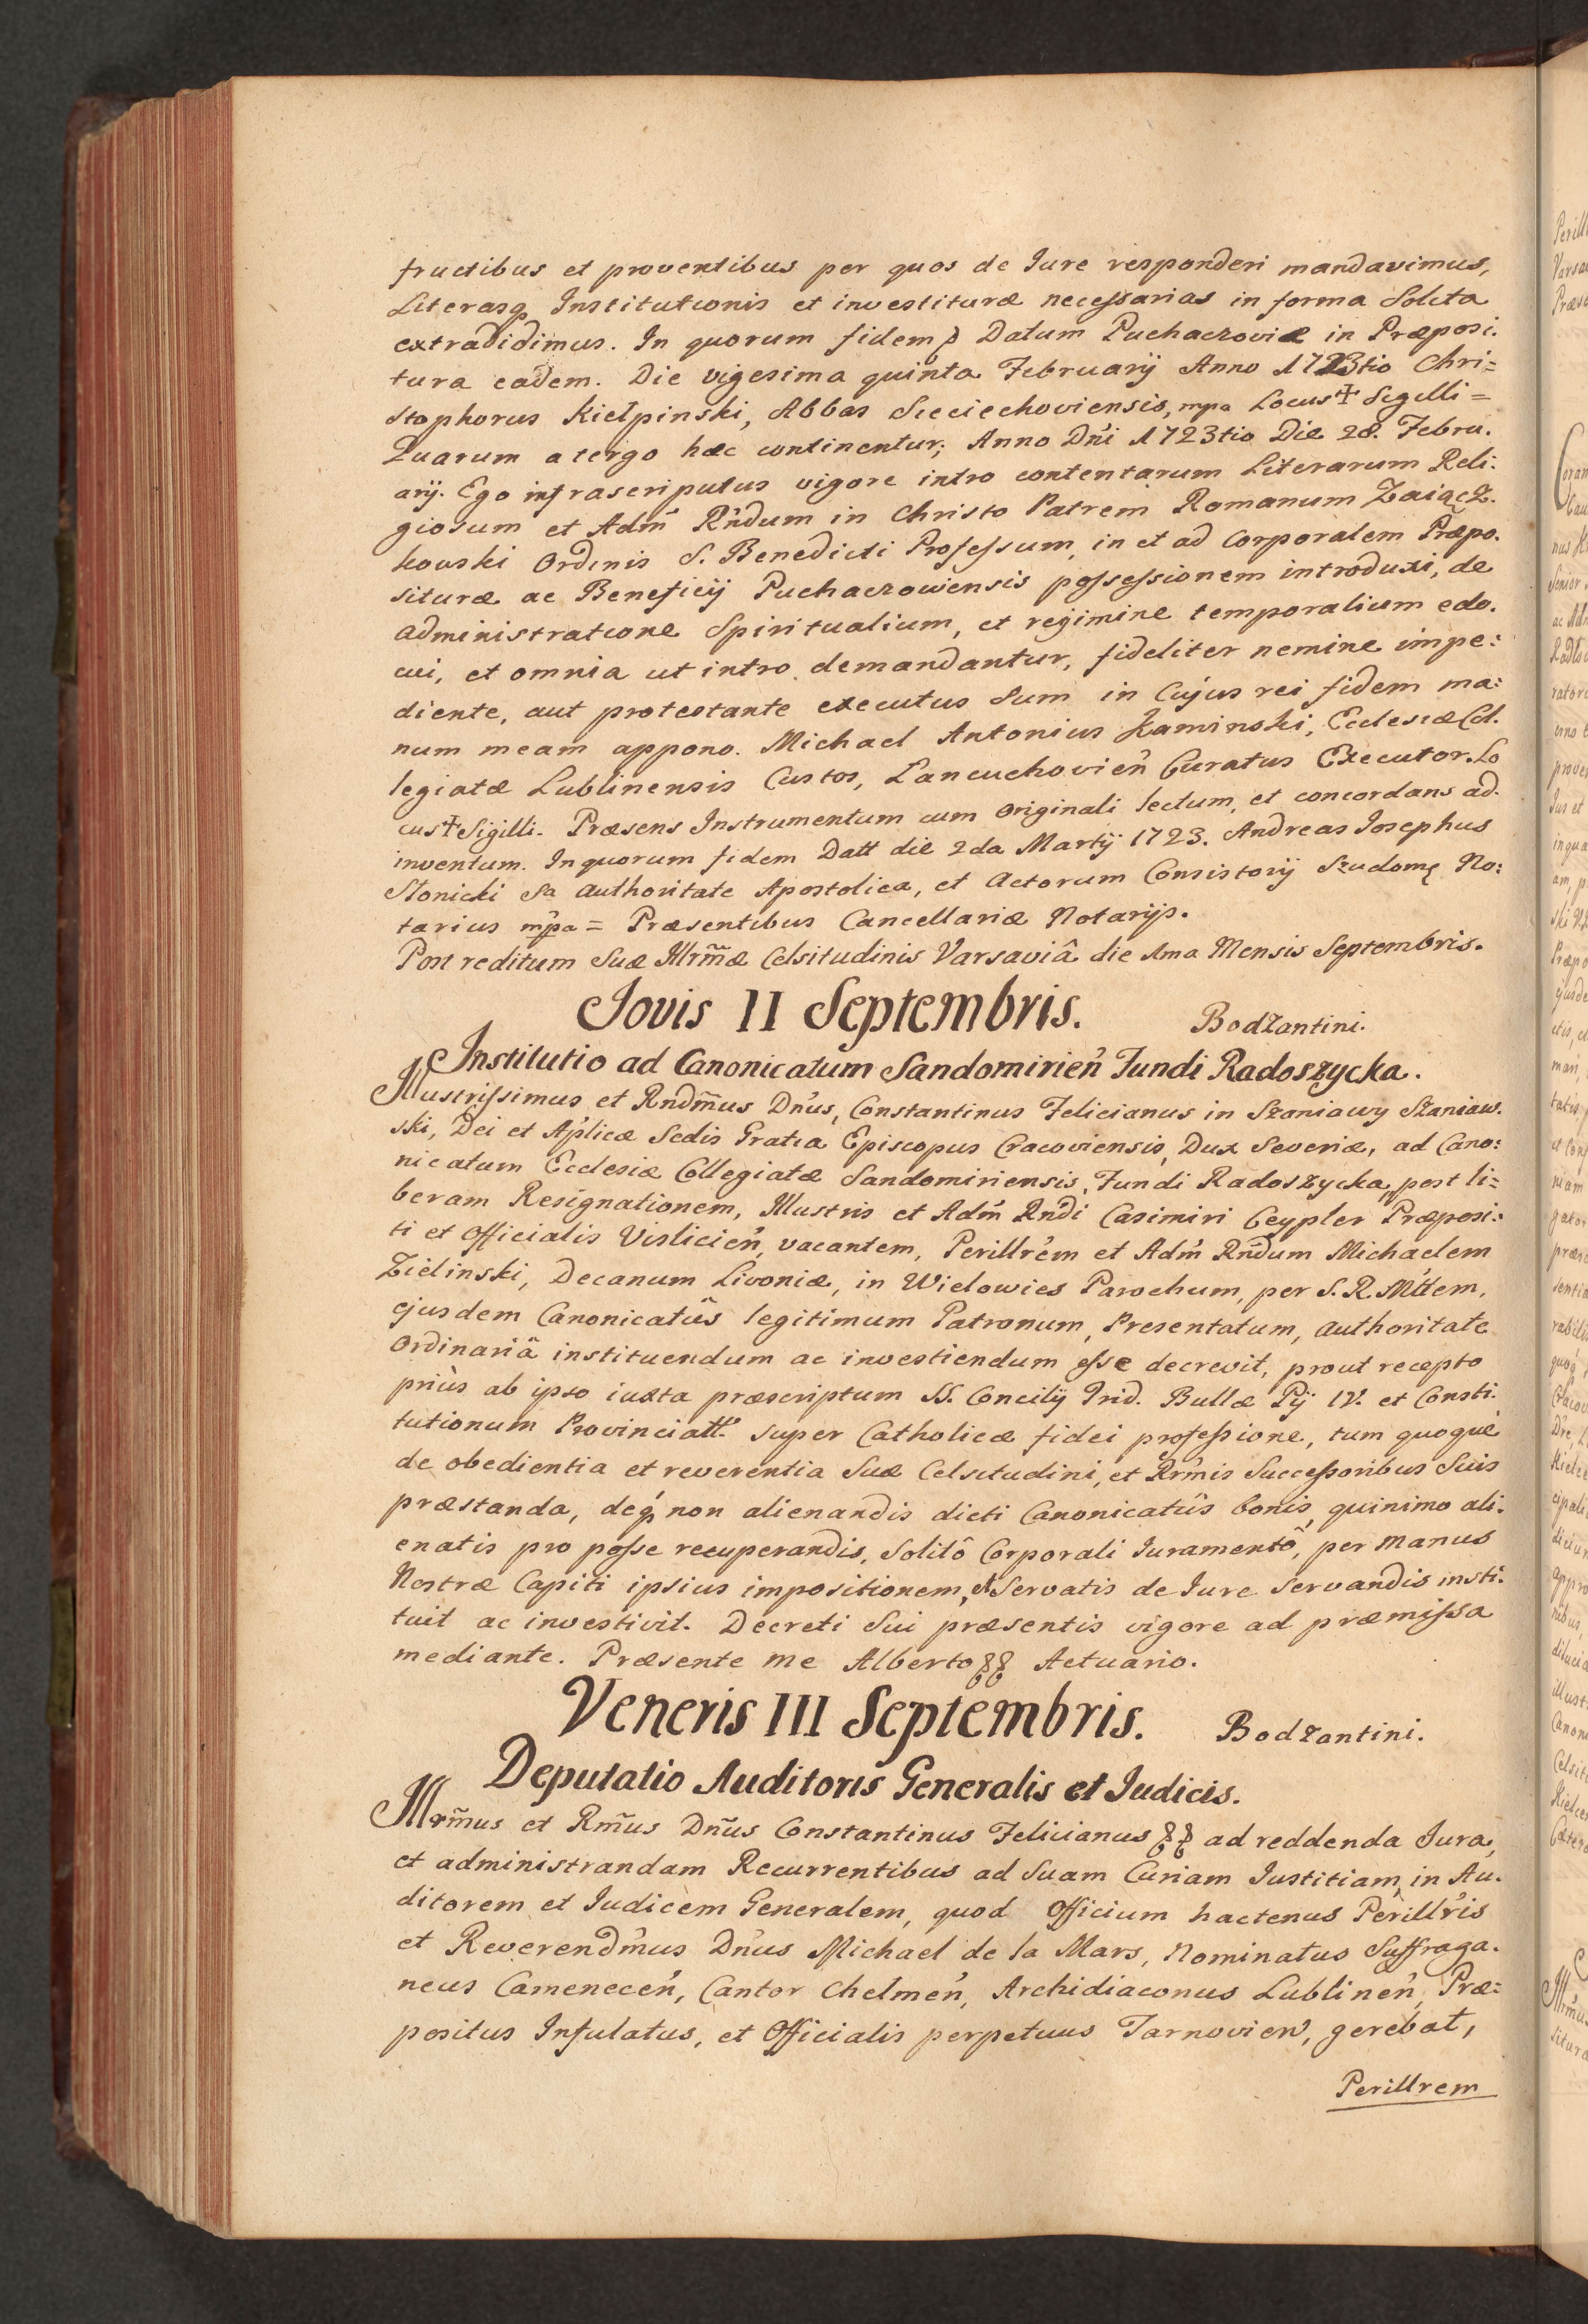 fructibus et proventibus per quos de Iure responderi mandavimus,
Literasq Institutionis et investituræ necessarias in forma Solita
extradidimus. In quorum fidem Datum Puchaczoviæ in Præposi.
tura eadem. Die vigesima quinta Februarij Anno 1723tio Chri=
stophorus Kiełpinski, Abbas Sieciechoviensis, mpa Locus ✝ Sigilli =
Quarum a tergo hæc continentur; Anno Dńi 1723tio Die 28. Febru.
arij. Ego infrascriputus vigore intro contentarum Literarum Reli:
giosum et Adm̃ Rńdum in Christo Patrem Romanum Zaiącz.
kowski Ordinis S. Benedicti Professum, in et ad Corporalem Præpo.
situræ ac Beneficij Puchaczowiensis possessionem introduxi, de
administratione Spiritualium, et regimine temporalium edo.
cui, et omnia ut intro demandantur, fideliter nemine impe:
diente, aut protestante executus sum in Cujus rei fidem ma:
num meam appono. Michael Antonius Kaminski, Ecclesiæ Col.
legiatæ Lublinensis Custos, Lancuchovień Curatus Executor. Lo
cus ✝ Sigilli. Præsens Instrumentum cum originali lectum, et concordans ad.
inventum. In quorum fidem Datt die 2da Martij 1723. Andreas Iosephus
Słonicki Sa authoritate Apostolica, et Actorum Consistorij Szudomę No:
tarius mpa = Præsentibus Cancellariæ Notarijs.
Post reditum Suæ Illrm̃æ Celsitudinis Varsaviâ die 1ma Mensis Septembris.
Iovis II Septembris. Bodzantini.
Institutio ad Canonicatum Sandomirień Fundi Radoszycka.
Illustrissimus et Rndm̃us Dńus, Constantinus Felicianus in Szaniawy Szaniaw.
ski, Dei et Aplicæ Sedis Gratia Episcopus Cracoviensis, Dux Severiæ, ad Cano:
nicatum Ecclesiæ Collegiatæ Sandomiriensis, Fundi Radoszycka, post li=
beram Resignationem, Illustris et Adm̃ Rńdi Casimiri Ceypler Præposi:
ti et Officialis Vislicień, vacantem, Perillrem et Adm̃ Rńdum Michaelem
Zielinski, Decanum Livoniæ, in Wielowies Parochum, per S. R. Mttem,
ejusdem Canonicatûs legitimum Patronum, Presentatum, authoritate
Ordinariâ instituendum ac investiendum esse decrevit, prout recepto
priùs ab ipso iuxta præscriptum SS. Concilij Trid. Bullæ Pij IV. et Consti.
tutionum Provinciatt. super Catholicæ fidei professione, tum quoque
de obedientia et reverentia Suæ Celsitudini, et Rrmis Successoribus Suis
præstanda, deq non alienandis dicti Canonicatûs bonis, quinimo ali.
enatis pro posse recuperandis, Solitô Corporali Iuramentô, per manus
Nostræ Capiti ipsius impositionem, et Servatis de Iure Servandis insti.
tuit ac investivit. Decreti Sui præsentis vigore ad præmissa
mediante. Præsente me Alberto Actuario.
Veneris III Septembris. Bodzantini.
Deputatio Auditoris Generalis et Iudicis.
Illrm̃us et Rm̃us Dñus Constantinus Felicianus ad reddenda Iura,
et administrandam Recurrentibus ad Suam Curiam Iustitiam, in Au.
ditorem et Iudicem Generalem, quod Officium hactenus Perillris
et Reverendmus Dńus Michael de la Mars, Nominatus Suffraga.
neus Cameneceń, Cantor Chelmeń, Archidiaconus Lublineń, Præ=
positus Infulatus, et Officialis perpetuus Tarnovień, gerebat,
Perillrem